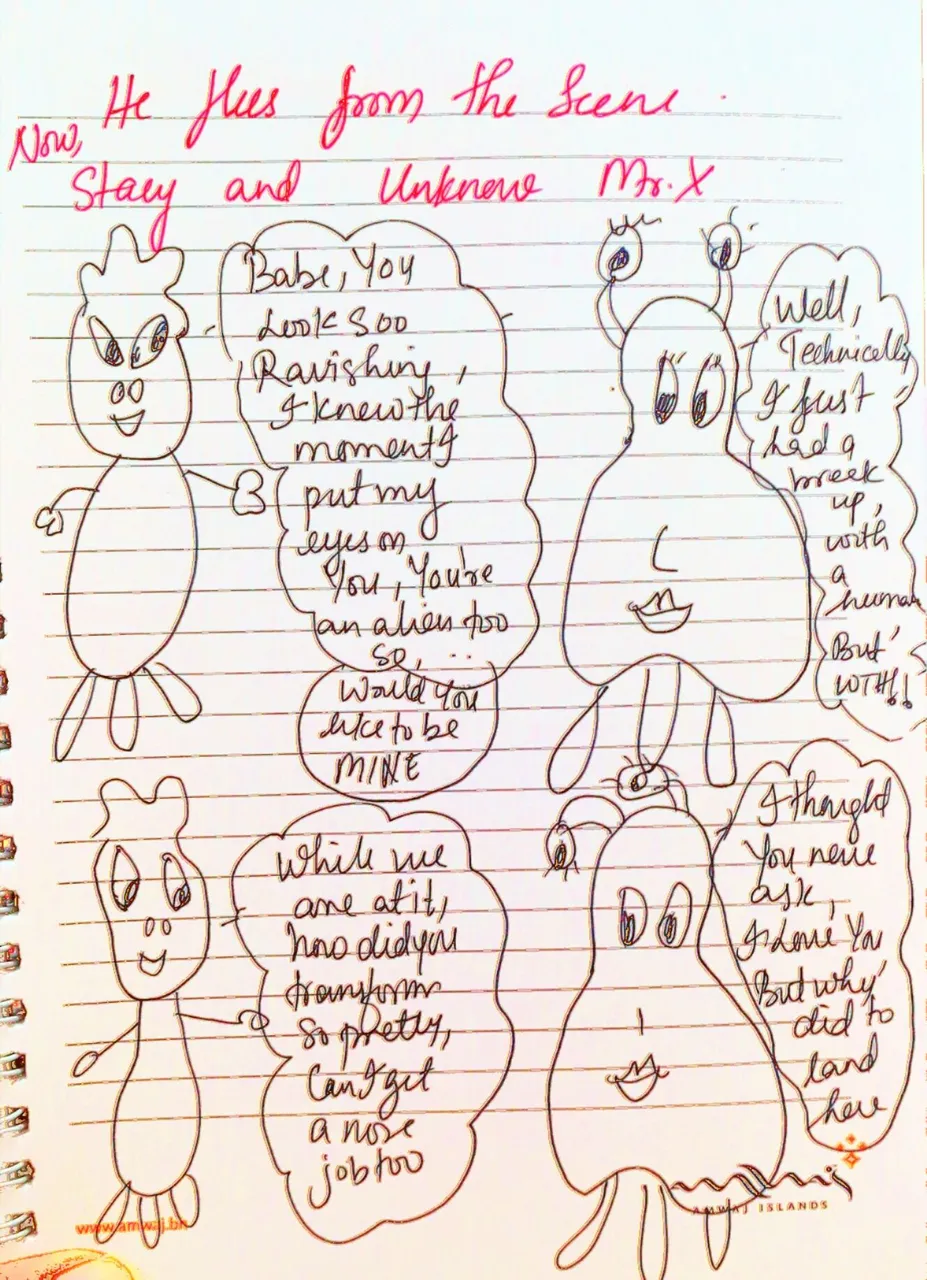 He flees from the Scene.
Now,
Stacy and Unknown Mr. X
Babe, You
Look Soo
Ravishing,
I knew the
moment I
put my
eyes on
You, You're
an alien too
so, ..
would you
like to be
MINE
Well,
Technically
I just
had a
break
up,
with
a
human
But
WTH!!
While we
are at it,
how did you
transform
so pretty,
Can I get
a nose
job too
I thought
You never
ask,
I Love You
But why
did to
land
here
www.amwaj.bh
AMWAJ ISLANDS